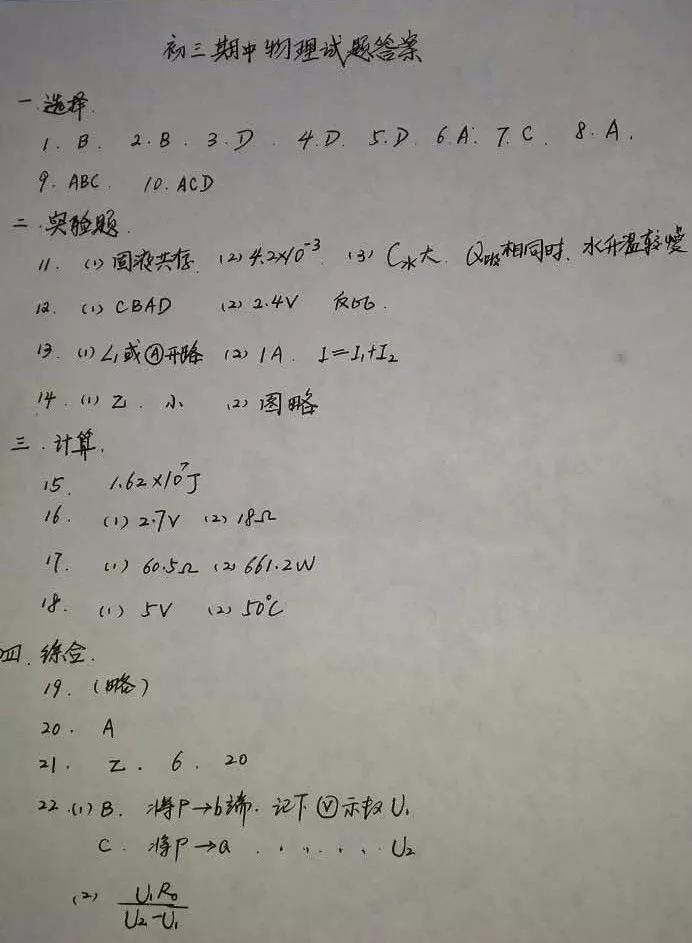 初三期中物理试题答案
一.选择.
1. B. 2. B. 3. D. 4. D. 5. D. 6. A. 7. C. 8. A.
9. ABC. 10. ACD
二.实验题.
11. (1) 固液共存 (2) 4.2×10⁻³ (3) C水大. Q吸相同时, 水升温较慢
12. (1) CBAD (2) 2.4V 反比.
13. (1) L₁或Ⓐ开路 (2) 1A. I=I₁+I₂
14. (1) 乙. 小 (2) 图略
三.计算.
15. 1.62×10⁷J
16. (1) 2.7V (2) 18Ω
17. (1) 60.5Ω (2) 661.2W
18. (1) 5V (2) 50℃
四.综合.
19. (略)
20. A
21. 乙. 6. 20
22.(1) B. 将P→b端. 记下Ⓥ示数U₁
C. 将P→a ...... U₂
(2) U₁R₀/(U₂-U₁)